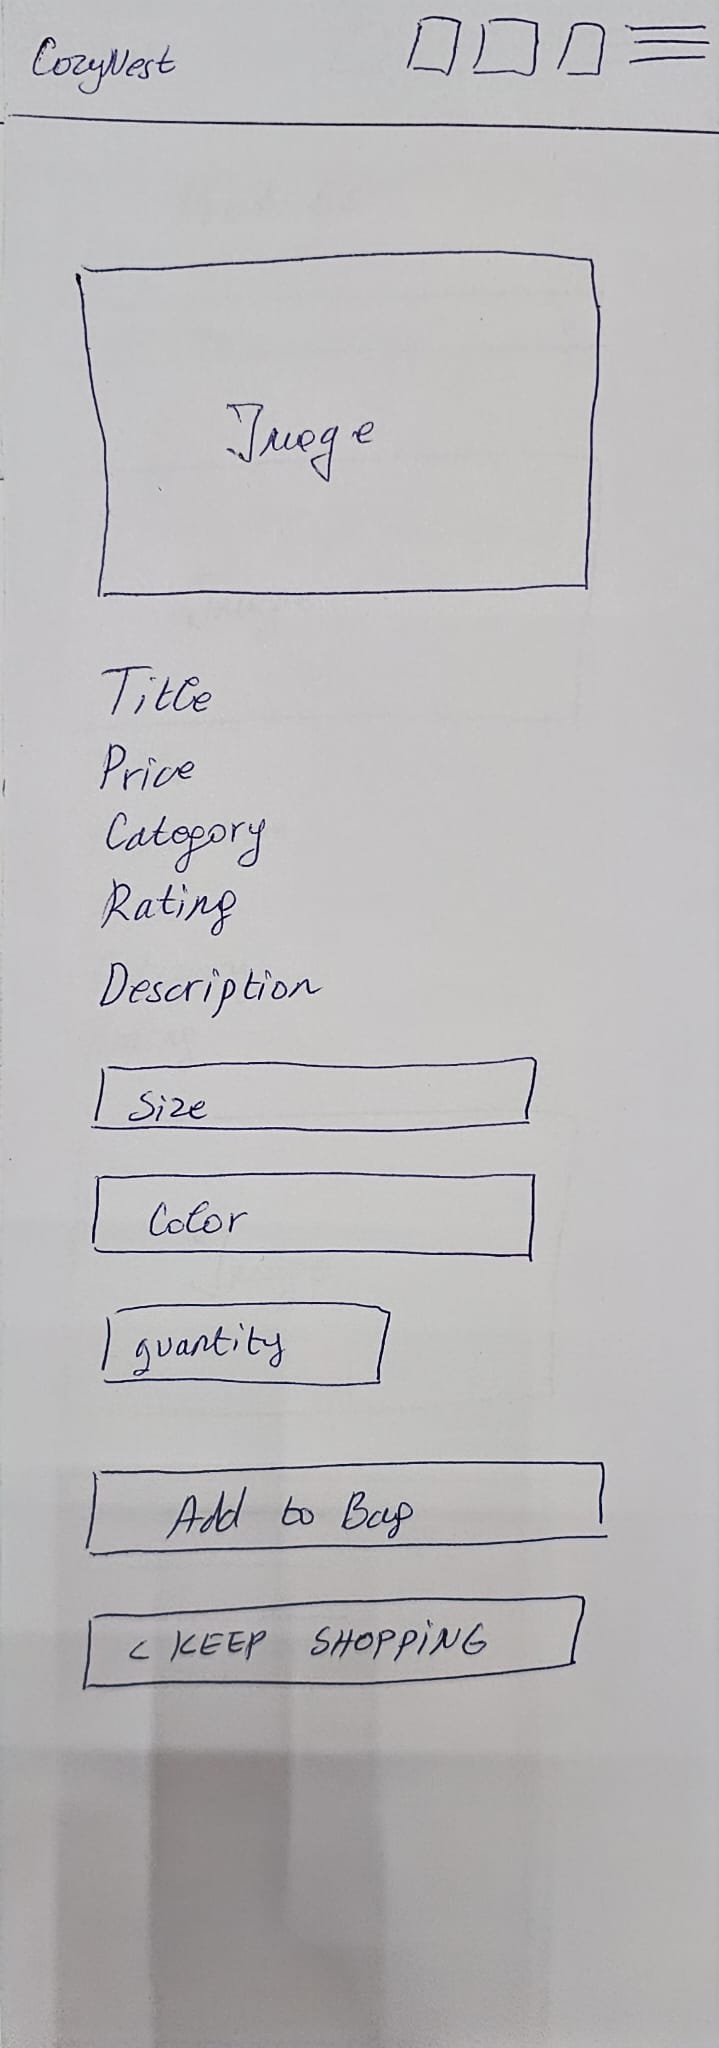 CozyNest
Image
Title
Price
Category
Rating
Description
Size
Color
quantity
Add to Bag
< KEEP SHOPPING